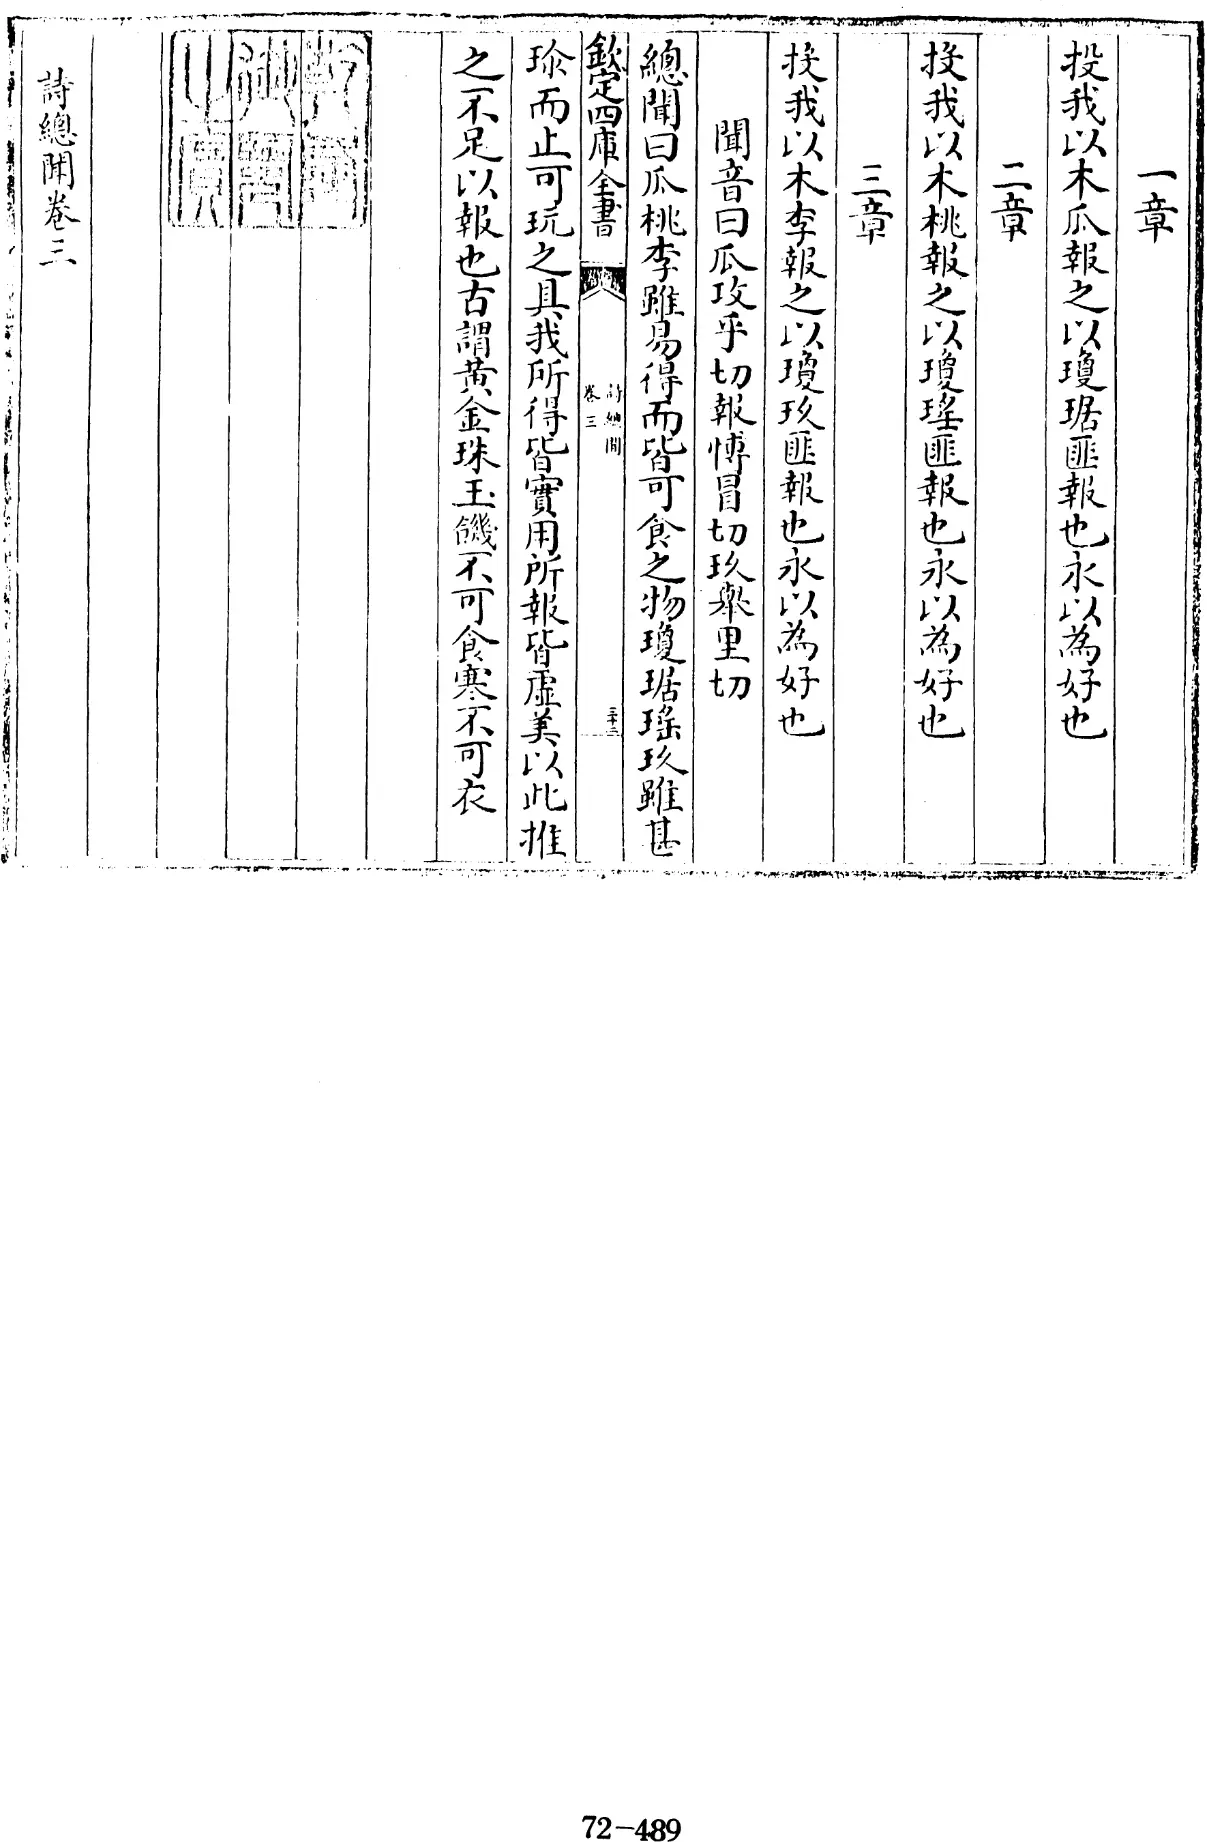 一章
投我以木瓜報之以瓊琚匪報也永以為好也
二章
投我以木桃報之以瓊瑤匪報也永以為好也
三章
投我以木李報之以瓊玖匪報也永以為好也
聞音曰瓜攻乎切報愽冒切玖舉里切
總聞曰瓜桃李雖易得而皆可食之物瓊琚瑤玖雖甚
欽定四庫全書
詩總聞
卷三
三十三
珍而止可玩之具我所得皆實用所報皆虛美以此推
之不足以報也古謂黄金珠玉饑不可食寒不可衣
乾隆
御覽
之寶
詩總聞卷三
72-489